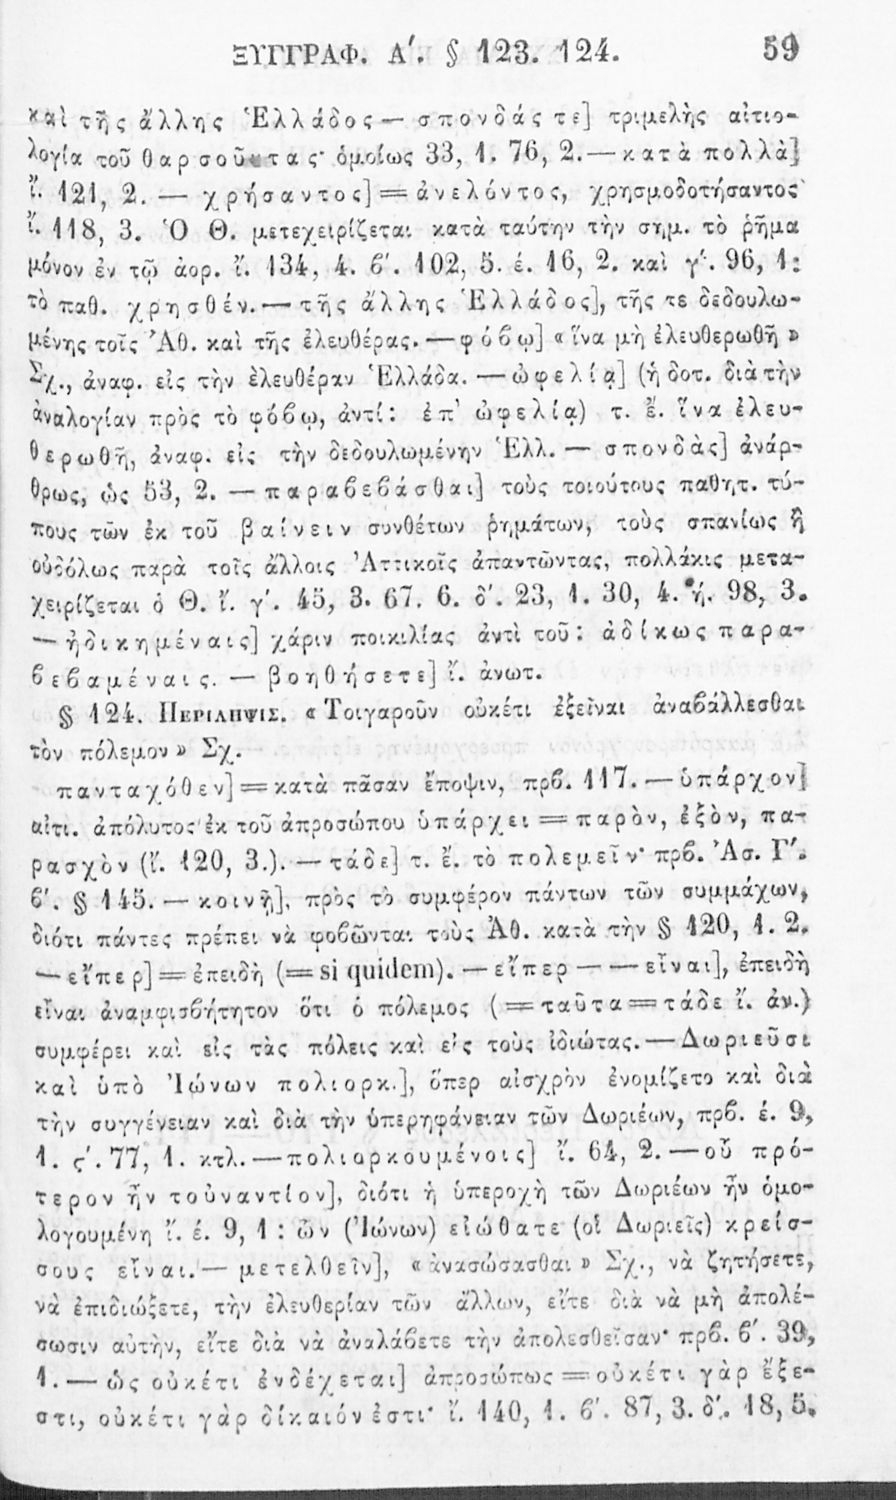 ΞΥΓΓΡΑΦ. Α΄. § 123. 124. 59
καὶ τῆς ἄλλης Ἑλλάδος — σπονδάς τε] τριμελὴς αἰτιο-
λογία τοῦ θαρσοῦντας· ὁμοίως 33, 1. 76, 2. — κατὰ πολλὰ]
ἴ. 121, 2. — χρήσαντος] = ἀνελόντος, χρησμοδοτήσαντος
ἴ. 118, 3. Ὁ Θ. μετεχειρίζεται κατὰ ταύτην τὴν σημ. τὸ ῥῆμα
μόνον ἐν τῷ ἀορ. ἴ. 134, 4. ϐ΄. 102, 5. έ. 16, 2. καὶ γ΄. 96, 1:
τὸ παθ. χρησθέν. — τῆς ἄλλης Ἑλλάδος], τῆς τε δεδουλω-
μένης τοῖς Ἀθ. καὶ τῆς ἐλευθέρας. — φόϐῳ] «ἵνα μὴ ἐλευθερωθῇ»
Σχ., ἀναφ. εἰς τὴν ἐλευθέραν Ἑλλάδα. — ὠφελίᾳ] (ἡ δοτ. διὰ τὴν
ἀναλογίαν πρὸς τὸ φόϐῳ, ἀντί: ἐπ' ὠφελίᾳ) τ. ἔ. ἵνα ἐλευ-
θερωθῇ, ἀναφ. εἰς τὴν δεδουλωμένην Ἑλλ. — σπονδὰς] ἀνάρ-
θρως, ὡς 53, 2. — παραϐεϐάσθαι] τοὺς τοιούτους παθητ. τύ-
πους τῶν ἐκ τοῦ βαίνειν συνθέτων ῥημάτων, τοὺς σπανίως ἢ
οὐδόλως παρὰ τοῖς ἄλλοις Ἀττικοῖς ἀπαντῶντας, πολλάκις μετα-
χειρίζεται ὁ Θ. ἴ. γ΄. 45, 3. 67. 6. δ΄. 23, 1. 30, 4. ή. 98, 3.
— ἠδικημέναις] χάριν ποικιλίας ἀντὶ τοῦ: ἀδίκως παρα-
ϐεϐαμέναις. — βοηθήσετε] ἴ. ἀνωτ.
§ 124. ΠΕΡΙΛΗΨΙΣ. «Τοιγαροῦν οὐκέτι ἐξεῖναι ἀναϐάλλεσθαι
τὸν πόλεμον» Σχ.
πανταχόθεν] = κατὰ πᾶσαν ἔποψιν, πρϐ. 117. — ὑπάρχον]
αἰτι. ἀπόλυτος ἐκ τοῦ ἀπροσώπου ὑπάρχει = παρὸν, ἐξὸν, πα-
ρασχὸν (ἴ. 120, 3.). — τάδε] τ. ἔ. τὸ πολεμεῖν· πρϐ. Ἀσ. Γ΄.
ϐ΄. § 145. — κοινῇ], πρὸς τὸ συμφέρον πάντων τῶν συμμάχων,
διότι πάντες πρέπει νὰ φοϐῶνται τοὺς Ἀθ. κατὰ τὴν § 120, 1. 2.
— εἴπερ] = ἐπειδὴ (= si quidem). — εἴπερ — — εἶναι], ἐπειδὴ
εἶναι ἀναμφισϐήτητον ὅτι ὁ πόλεμος (= ταῦτα = τάδε ἴ. ἀν.)
συμφέρει καὶ εἰς τὰς πόλεις καὶ εἰς τοὺς ἰδιώτας. — Δωριεῦσι
καὶ ὑπὸ Ἰώνων πολιορκ.], ὅπερ αἰσχρὸν ἐνομίζετο καὶ διὰ
τὴν συγγένειαν καὶ διὰ τὴν ὑπερηφάνειαν τῶν Δωριέων, πρϐ. έ. 9,
1. ς΄. 77, 1. κτλ. — πολιορκουμένοις] ἴ. 64, 2. — οὗ πρό-
τερον ἦν τοὐναντίον], διότι ἡ ὑπεροχὴ τῶν Δωριέων ἦν ὁμο-
λογουμένη ἴ. έ. 9, 1: ὧν (Ἰώνων) εἰώθατε (οἱ Δωριεῖς) κρείσ-
σους εἶναι. — μετελθεῖν], «ἀνασώσασθαι» Σχ., νὰ ζητήσετε,
νὰ ἐπιδιώξετε, τὴν ἐλευθερίαν τῶν ἄλλων, εἴτε διὰ νὰ μὴ ἀπολέ-
σωσιν αὐτὴν, εἴτε διὰ νὰ ἀναλάϐετε τὴν ἀπολεσθεῖσαν· πρϐ. ϐ΄. 39,
1. — ὡς οὐκέτι ἐνδέχεται] ἀπροσώπως = οὐκέτι γὰρ ἔξε-
στι, οὐκέτι γὰρ δίκαιόν ἐστι· ἴ. 140, 1. ϐ΄. 87, 3. δ΄. 18, 5.